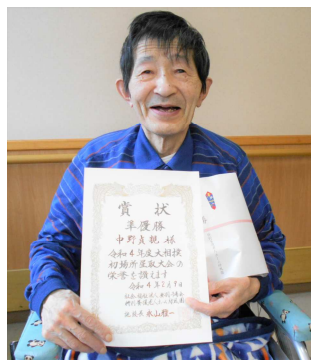 賞状
準優勝
中野貞規 様
令和4年度大相撲
初場所星取大会の
栄誉を讃えます
令和4年2月9日
施設長 永山雅一